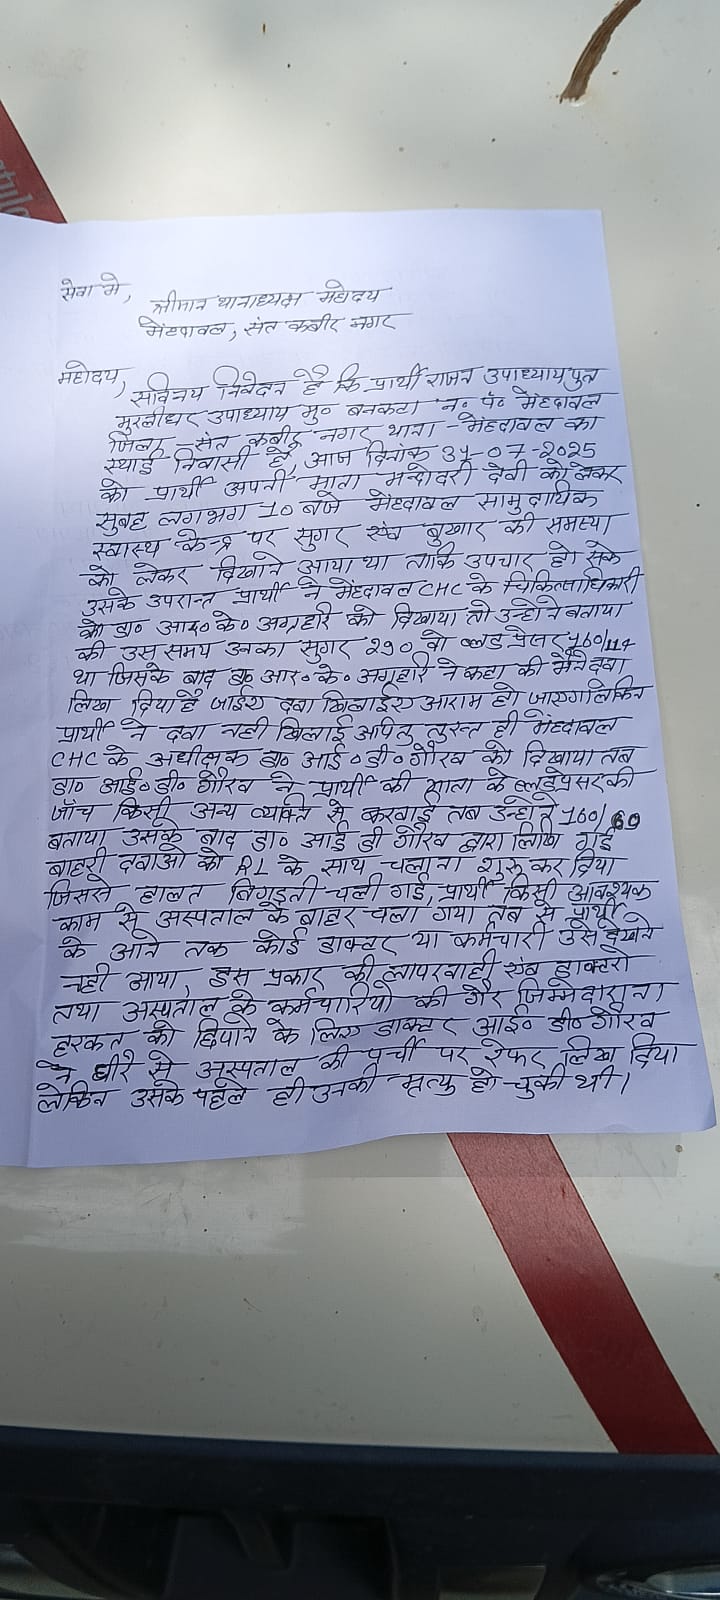 सेवा मे,
श्रीमान थानाध्यक्ष महोदय
मेंहदावल, संत कबीर नगर
महोदय,
सविनय निवेदन है कि प्रार्थी राजन उपाध्याय पुत्र
मुरलीधर उपाध्याय मु० बनकटा न० पं० मेंहदावल
जिला - संत कबीर नगर थाना - मेंहदावल का
स्थाई निवासी है, आज दिनांक 31-07-2025
को प्रार्थी अपनी माता मन्दोदरी देवी को लेकर
सुबह लगभग 10 बजे मेंहदावल सामुदायिक
स्वास्थ केन्द्र पर सुगर एंव बुखार की समस्या
को लेकर दिखाने आया था ताकि उपचार हो सके
उसके उपरान्त प्रार्थी ने मेंहदावल CHC के चिकित्साधिकारी
को डा० आर० के० अग्रहरि को दिखाया तो उन्होने बताया
की उस समय उनका सुगर 290 वो ब्लड प्रेसर 160/114
था जिसके बाद डा० आर० के० अग्रहरि ने कहा की मैने दवा
लिख दिया है जाईए दवा खिलाईए आराम हो जाएगा लेकिन
प्रार्थी ने दवा नही खिलाई अपितु तुरन्त ही मेंहदावल
CHC के अधीक्षक डा० आई० डी० गौरव को दिखाया तब
डा० आई० डी० गौरव ने प्रार्थी की माता के ब्लडप्रेसर की
जाँच किसी अन्य व्यक्ति से करवाई तब उन्होने 100/60
बताया उसके बाद डा० आई डी गौरव द्वारा लिखि गई
बाहरी दवाओ को RL के साथ चलाना शुरू कर दिया
जिससे हालत बिगड़ती चली गई, प्रार्थी किसी आवश्यक
काम से अस्पताल के बाहर चला गया तब से प्रार्थी
के आने तक कोई डाक्टर या कर्मचारी उसे देखने
नही आया, इस प्रकार की लापरवाही एंव डाक्टरो
तथा अस्पताल के कर्मचारियो की गैर जिम्मेदाराना
हरकत को छिपाने के लिए डाक्टर आई० डी० गौरव
ने धीरे से अस्पताल की पर्ची पर रेफर लिख दिया
लेकिन उसके पहले ही उनकी मृत्यु हो चुकी थी।